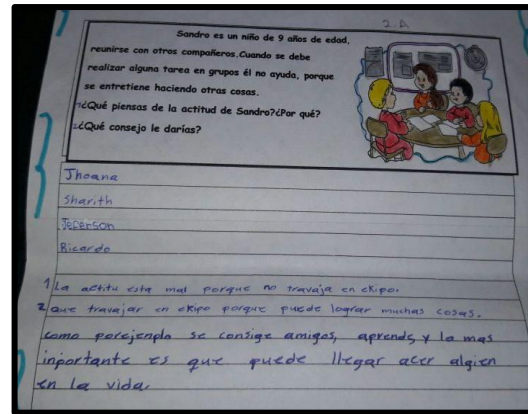 2.A
Sandro es un niño de 9 años de edad,
reunirse con otros compañeros.Cuando se debe
realizar alguna tarea en grupos él no ayuda, porque
se entretiene haciendo otras cosas.
1¿Qué piensas de la actitud de Sandro?¿Por qué?
2¿Qué consejo le darías?
Jhoana
Sharith
Jeferson
Ricardo
1 La actitu esta mal porque no travaja en ekipo.
2 que travajar en ekipo porque puede lograr muchas cosas.
como porejenplo se consige amigos, aprends y lo mas
inportante es que puede llegar acer algien
en la vida.